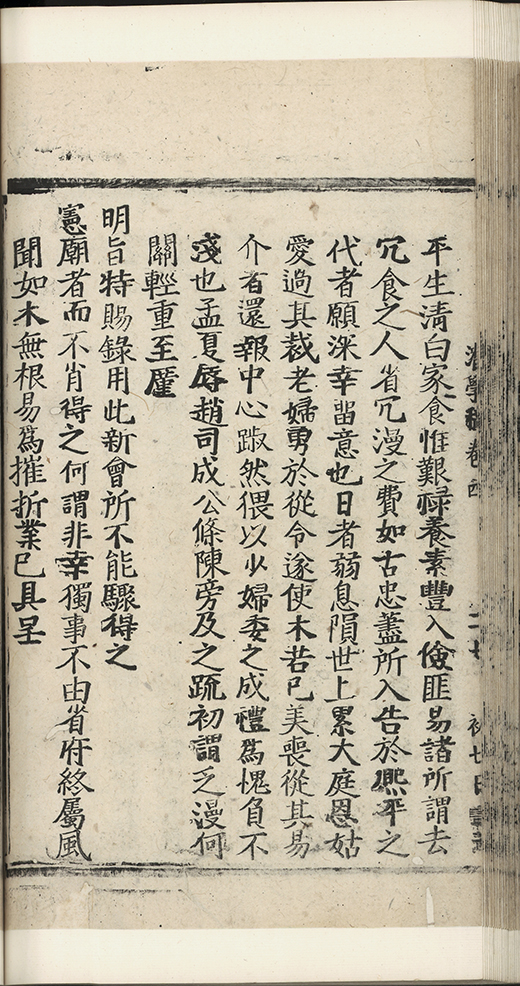 平生清白家食惟艱祿養素豐入儉匪易諸所謂去
冗食之人省冗漫之費如古忠藎所入告於熙平之
代者願深幸畱意也日者弱息隕世上累大庭恩姑
愛過其裁老婦勇於從令遂使木若已美喪從其易
介者還報中心踧然猥以少婦委之成禮爲愧負不
淺也孟夏辱趙司成公條陳旁及之疏初謂乏漫何
關輕重至厪
明旨特賜錄用此新會所不能驟得之
憲廟者而不肖得之何謂非幸獨事不由省府終屬風
聞如木無根易爲摧折業已具呈
學 卷四
二十七
初七日